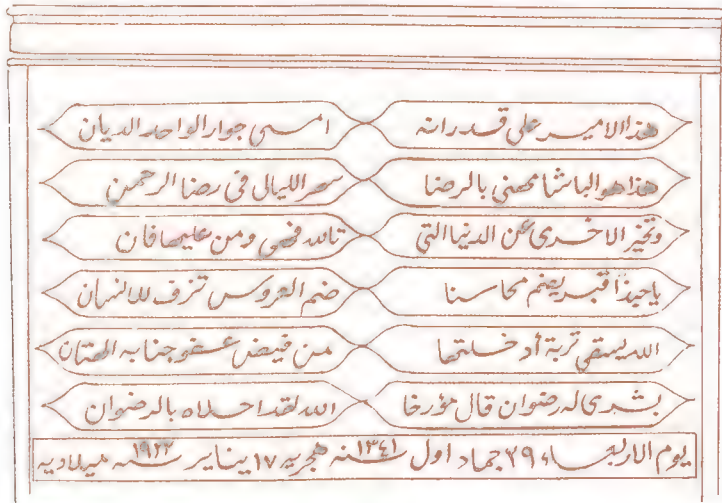 هذا الامير على قدرانه امسى جوار الواحد الديان
هذا هو الباشا مهنى بالرضا سهر الليالى فى رضا الرحمن
وتخير الاخرى عن الدنيا التى تالله فهى ومن عليها فان
يا حبذا قبر يضم محاسنا ضم العروس تزف للالنهان
الله يسقى تربة أدخلتها من فيض عفو جنابه الهتان
بشرى له رضوان قال مؤرخا الله لقد احلاه بالرضوان
يوم الاربعاء ٢٩ جماد اول سنه ١٣٤١ هجريه ١٧ يناير سنه ١٩٢٣ ميلاديه